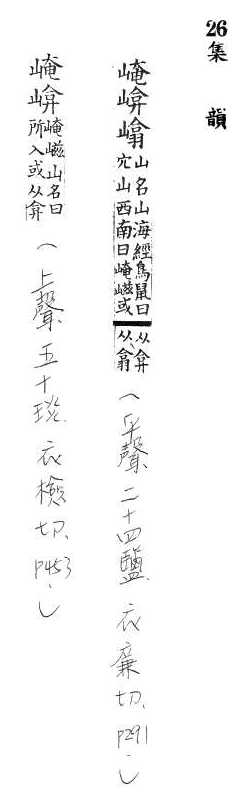 26集 韻
崦㟇嵡山名山海經鳥鼠同穴山西南曰崦嵫或从弇从翕（平聲二十四鹽.衣廉切.P291.）
崦㟇崦嵫山名日所入或从弇（上聲五十琰.衣檢切.P453.）